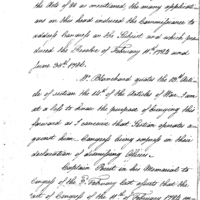 the Acts of as mentioned, the many applicati-
ons on that head induced the Commissioners to
address Congress on the Subject and which pro-
duced the Resolve of February 11th 178 and
June 30th 1786.
Mr. Blanchard quotes the 13th Arti-
cle of section the 14th of the Articles of War. I am
at a loss to know the purpose of bringing this
forward as I conceive that Section operates a-
gainst him. Congress being express in their
declaration of dismissing Officers.
Captain in his Memorial to
Congress of the February last asserts that the
act of Congress of the 11th of February 178